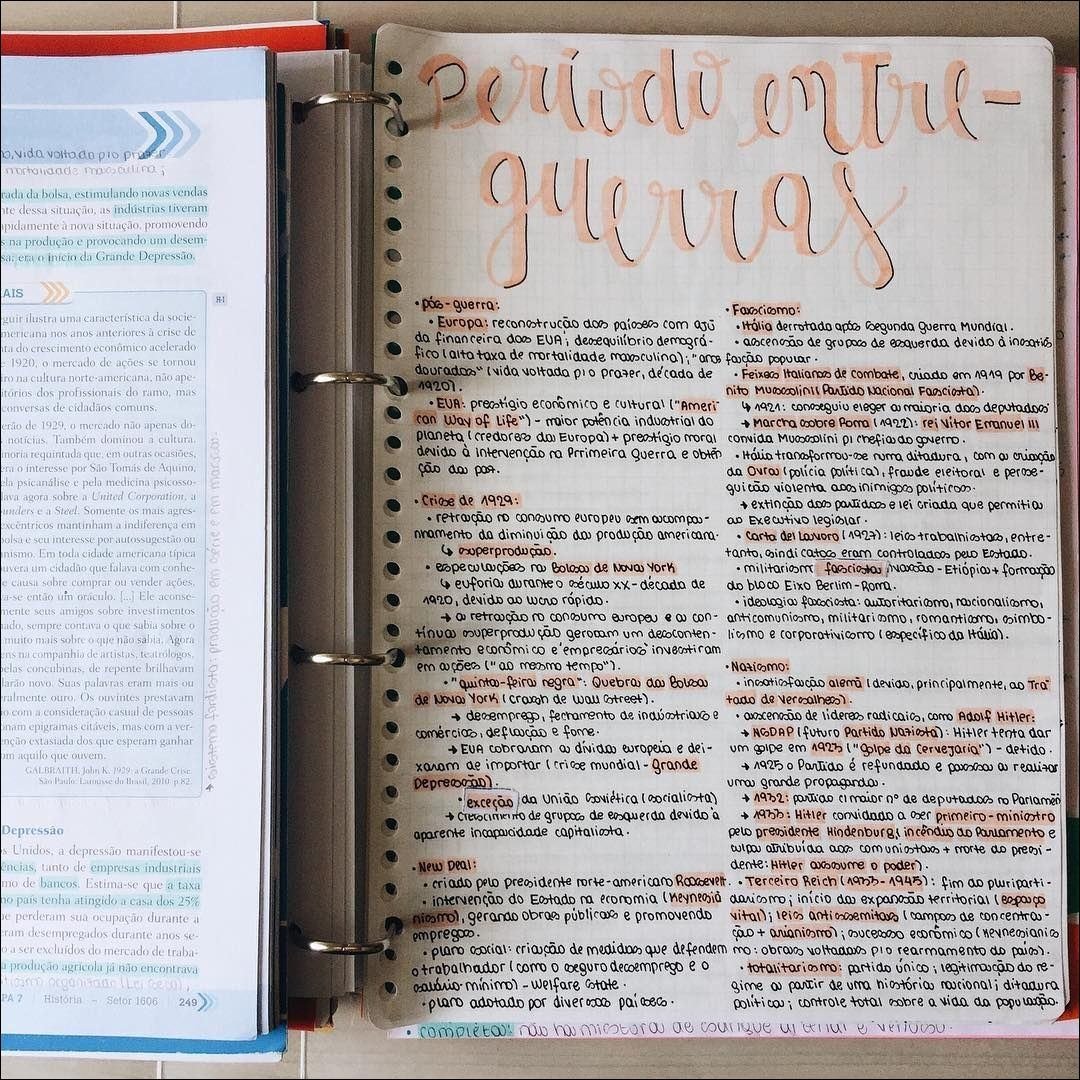 a, vida voltada p/o prazer
mortalidade masculina;
rada da bolsa, estimulando novas vendas
nte dessa situação, as indústrias tiveram
apidamente à nova situação, promovendo
s na produção e provocando um desem-
sa; era o início da Grande Depressão.
AIS
H-1
guir ilustra uma característica da socie-
mericana nos anos anteriores à crise de
ta do crescimento econômico acelerado
1920, o mercado de ações se tornou
ro na cultura norte-americana, não ape-
itórios dos profissionais do ramo, mas
conversas de cidadãos comuns.
erão de 1929, o mercado não apenas do-
s notícias. Também dominou a cultura.
noria requintada que, em outras ocasiões,
era o interesse por São Tomás de Aquino,
ela psicanálise e pela medicina psicosso-
lava agora sobre a United Corporation, a
unders e a Steel. Somente os mais agres-
excêntricos mantinham a indiferença em
bolsa e seu interesse por autossugestão ou
nismo. Em toda cidade americana típica
uvera um cidadão que falava com conhe-
causa sobre comprar ou vender ações,
va-se então um oráculo. [...] Ele aconse-
mente seus amigos sobre investimentos
nado, sempre contava o que sabia sobre o
muito mais sobre o que não sabia. Agora
ens na companhia de artistas, teatrólogos,
pelas concubinas, de repente brilhavam
larão novo. Suas palavras eram mais ou
eralmente ouro. Os ouvintes prestavam
com a consideração casual de pessoas
onam epigramas citáveis, mas com a ver-
enção extasiada dos que esperam ganhar
om aquilo que ouvem.
GALBRAITH, John K. 1929: a Grande Crise.
São Paulo: Larousse do Brasil, 2010. p.82.
sistema fordista: produção em série e em massa
Depressão
s Unidos, a depressão manifestou-se
ências, tanto de empresas industriais
mo de bancos. Estima-se que a taxa
no país tenha atingido a casa dos 25%
e perderam sua ocupação durante a
eram desempregados durante anos se-
o a ser excluídos do mercado de traba-
a produção agrícola já não encontrava
PA 7 História – Setor 1606 249
Período entre-
guerras
• pós-guerra:
• Europa: reconstrução dos países com aju
da financeira dos EUA; desequilíbrio demográ-
fico (alta taxa de mortalidade masculina); "anos
dourados" (vida voltada p/o prazer, década de
1920).
• EUA: prestígio econômico e cultural ("Ameri
can Way of Life") - maior potência industrial do
planeta (credores da Europa) + prestígio moral
devido à intervenção na Prrimeira Guerra e obten
ção da paz.
• Crise de 1929:
• retração no consumo europeu sem acompa-
nhamento da diminuição da produção americana.
↳ superprodução.
• especulações na Bolsa de Nova York
↳ euforia durante o século XX - década de
1920, devido ao lucro rápido.
→ a retração no consumo europeu e a con-
tínua superprodução geraram um desconten-
tamento econômico e empresários investiram
em ações ("ao mesmo tempo").
• "quinta-feira negra": Quebra da Bolsa
de Nova York (crash de wall street).
→ desemprego, fechamento de indústrias e
comércios, deflação e fome.
→ EUA cobraram a dívida europeia e dei-
xaram de importar (crise mundial - Grande
Depressão)
• exceção da União Soviética (socialista)
→ crescimento de grupos de esquerda devido à
aparente incapacidade capitalista.
• New Deal:
• criado pelo presidente norte-americano Roosevelt.
• intervenção do Estado na economia (Keynesia
nismo), gerando obras públicas e promovendo
empregos.
• plano social: criação de medidas que defendem
o trabalhador (como o seguro desemprego e o
salário-mínimo) - Welfare State.
• plano adotado por diversos países.
• Fascismo:
• Itália derrotada após segunda guerra Mundial.
• ascensão de grupos de esquerda devido à insatis
fação popular.
• Feixes Italianos de combate, criado em 1919 por Be-
nito Mussolini (Partido Nacional Fascista).
↳ 1921: conseguiu eleger a maioria dos deputados
→ Marcha sobre Roma (1922): rei Vitor Emanuel III
convida Mussolini p/ chefia do governo.
• Itália transformou-se numa ditadura, com a criação
da Ovra (polícia política), fraude eleitoral e perse-
guição violenta aos inimigos políticos.
→ extinção dos partidos e lei criada que permitia
ao Executivo legislar.
• Carta del Lavoro (1927): leis trabalhistas, entre-
tanto, sindicatos eram controlados pelo Estado.
• militarismo fascista: invasão - Etiópia + formação
do bloco Eixo Berlim-Roma.
• ideologia fascista: autoritarismo, nacionalismo,
anticomunismo, militarismo, romantismo, simbo-
lismo e corporativismo (específico da Itália).
• Nazismo:
• insatisfação alemã (devido, principalmente, ao Tra-
tado de Versalhes).
• ascensão de líderes radicais, como Adolf Hitler:
→ NGDAP (futuro Partido Nazista): Hitler tenta dar
um golpe em 1923 ("Golpe da Cervejaria") - detido.
→ 1925 o Partido é refundado e passou a realizar
uma grande propaganda.
→ 1932: partido c/ maior nº de deputados no Parlamen
→ 1933: Hitler convidado a ser primeiro-ministro
pelo presidente Hindenburg; incêndio do Parlamento e
culpa atribuída aos comunistas + morte do presi-
dente: Hitler assume o poder).
• Terceiro Reich (1933-1945): fim do pluriparti-
darismo; início da expansão territorial (espaço
vital); leis antissemitas (campos de concentra-
ção + arianismo); sucesso econômico (Keynesianis
mo: obras voltadas p/o rearmamento do país).
• totalitarismo: partido único; legitimação do re-
gime a partir de uma história nacional; ditadura
política; controle total sobre a vida da população.
• completa: não há mistura de sangue arterial e venoso.